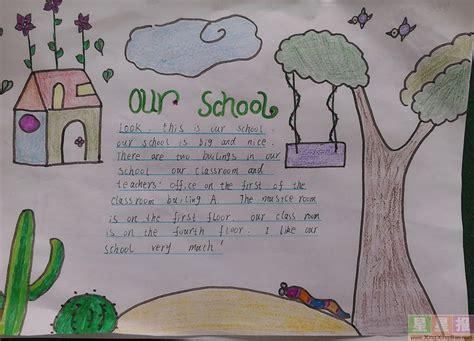 OUR SCHOOL
Look, this is our school.
our school is big and nice.
There are two builings in our
school our classroom and
teachers' office on the first of the
classroom builing A. The musice room
is on the first floor. our class room
is on the fourth floor. I like our
school very much!
星星报
www.XingXingBao.net